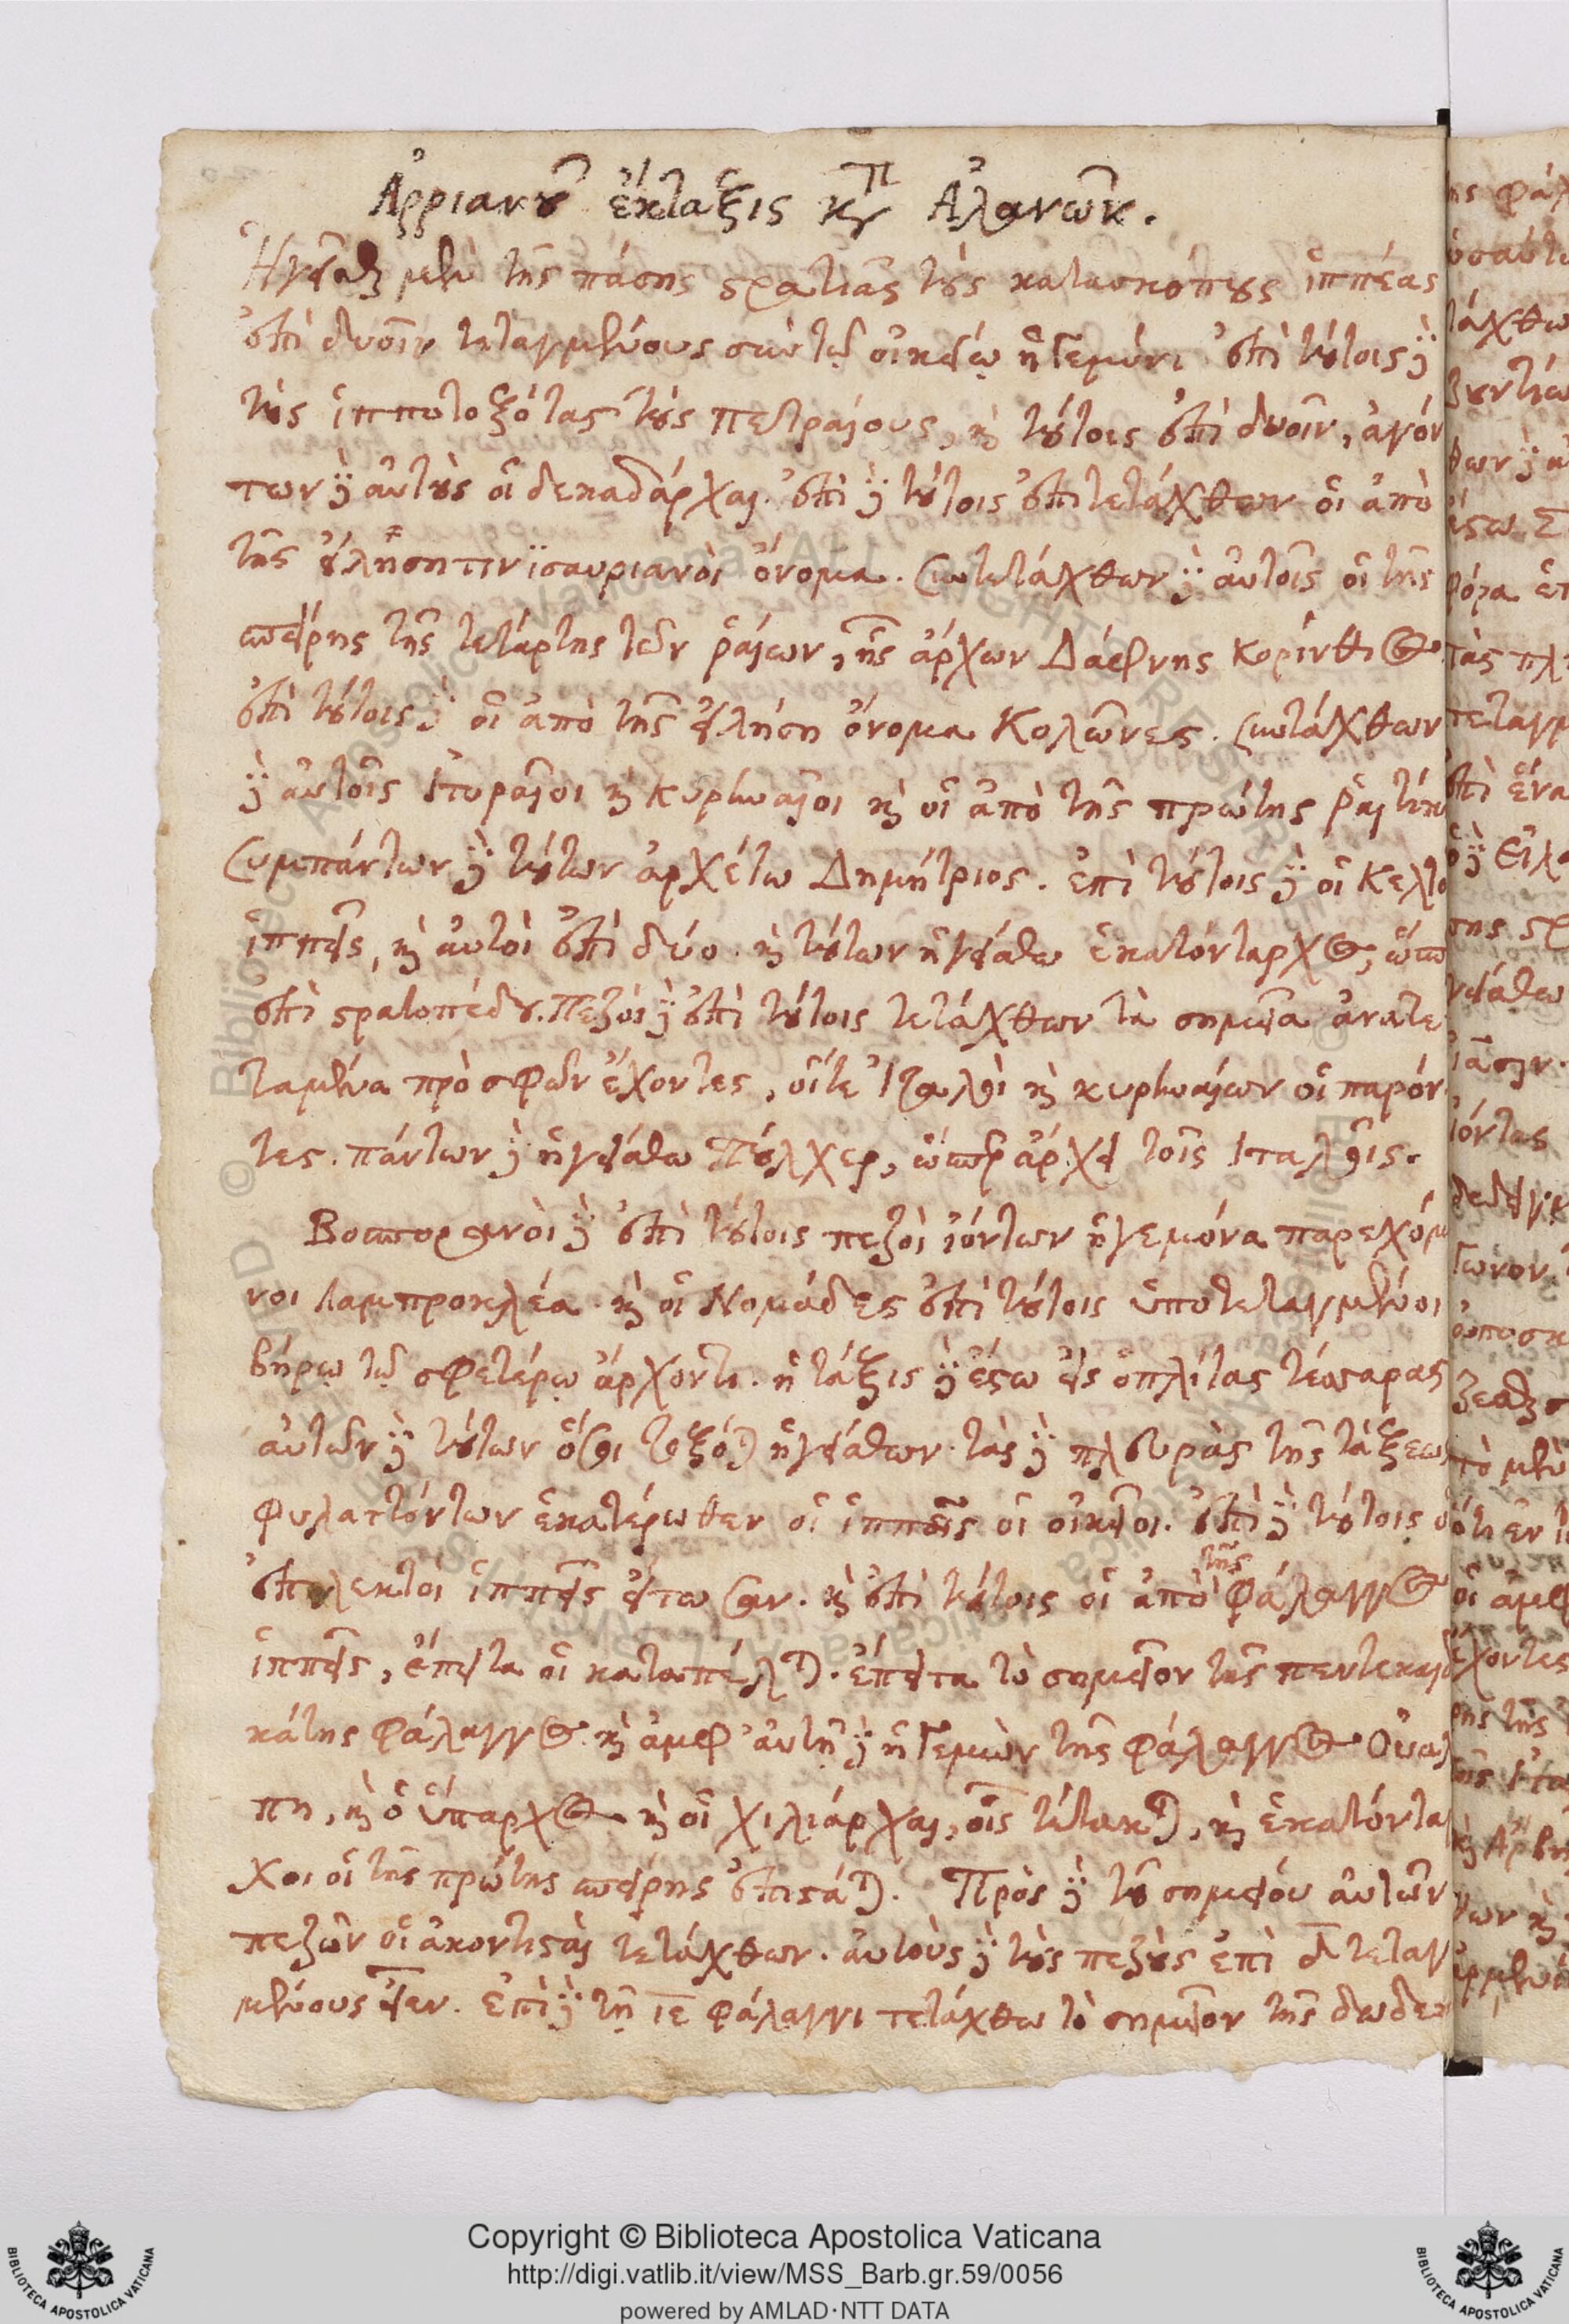 Ἀρριανοῦ ἔκταξις κατὰ Ἀλανῶν.
Ἡγεῖσθαι μὲν τῆς πάσης στρατιᾶς τοὺς κατασκόπους ἱππέας
ἐπὶ δυοῖν τεταγμένους σὺν τῷ οἰκείῳ ἡγεμόνι. ἐπὶ τούτοις δὲ
τοὺς ἱπποτοξότας τοὺς πετραίους, καὶ τούτοις ἐπὶ δυοῖν, ἀγόν
των δὲ αὐτοὺς οἱ δεκαδάρχαι. ἐπὶ δὲ τούτοις ἐπιτετάχθων οἱ ἀπὸ
τῆς εἴλης ᾗ τιν ἰσαυριανοὶ ὄνομα. συντετάχθων δὲ αὐτοῖς οἱ τῆς
σπείρης τῆς τετάρτης τῶν ῥαίων, ἧς ἄρχων Δάφνης Κορίνθιος.
ἐπὶ τούτοις δὲ οἱ ἀπὸ τῆς εἴλης ᾗ ὄνομα Κολῶνες. συντάχθων
δὲ αὐτοῖς Ἰτυραῖοι καὶ Κυρηναῖοι καὶ οἱ ἀπὸ τῆς πρώτης ῥαιτικ
συμπάντων δὲ τούτων ἀρχέτω Δημήτριος. ἐπὶ τούτοις δὲ οἱ Κελτο
ἱππεῖς, καὶ αὐτοὶ ἐπὶ δύο. καὶ τούτων ἡγείσθω ἑκατόνταρχος, ὥσπ
ἐπὶ στρατοπέδου. Πεζοὶ δὲ ἐπὶ τούτοις τετάχθων τὰ σημεῖα ἀνατε
ταμένα πρὸ σφῶν ἔχοντες, οἵτε Ἰταλοὶ καὶ κυρηναίων οἱ παρόν
τες. πάντων δὲ ἡγείσθω Πούλχερ, ὥσπερ ἄρχει τοῖς Ἰταλοῖς.
Βοσπορανοὶ δὲ ἐπὶ τούτοις πεζοὶ ἰόντων ἡγεμόνα παρεχόμ
νοι Λαμπροκλέα. καὶ οἱ Νομάδες ἐπὶ τούτοις ὑποτεταγμένοι
βήρῳ τῷ σφετέρῳ ἄρχοντι. ἡ τάξις δὲ ἔστω εἰς ὁπλίτας τέσσαρας
αὐτῶν δὲ τούτων ὅσοι τοξόται ἡγείσθων. τὰς δὲ πλευρὰς τῆς τάξεω
φυλαττόντων ἑκατέρωθεν οἱ ἱππεῖς οἱ οἰκεῖοι. ἐπὶ δὲ τούτοις ὁ
ἐπίλεκτοι ἱππεῖς ἔστωσαν. καὶ ἐπὶ τούτοις οἱ ἀπὸ τῆς φάλαγγος
ἱππεῖς, ἔπειτα οἱ καταπέλται. ἔπειτα τὸ σημεῖον τῆς πεντεκαιδ
κάτης φάλαγγος. καὶ ἀμφ’ αὐτῇ δὲ ἡγεμὼν τῆς φάλαγγος Οὐαλ
πη, καὶ ὁ ὕπαρχος καὶ οἱ χιλιάρχαι, οἷς τέτακται, καὶ ἑκατόντα
χοι οἱ τῆς πρώτης σπείρης ἐπιστάται. Πρὸς δὲ τοῦ σημείου αὐτῶν
πεζῶν οἱ ἀκοντισταὶ τετάχθων. αὐτοὺς δὲ τοὺς πεζοὺς ἐπὶ δ τεταγ
μένους εἶεν. ἐπὶ δὲ τῇ ιε φάλαγγι τετάχθω τὸ σημεῖον τῆς δωδεκ
Copyright © Biblioteca Apostolica Vaticana
http://digi.vatlib.it/view/MSS_Barb.gr.59/0056
powered by AMLAD·NTT DATA
BIBLIOTECA APOSTOLICA VATICANA
BIBLIOTECA APOSTOLICA VATICANA